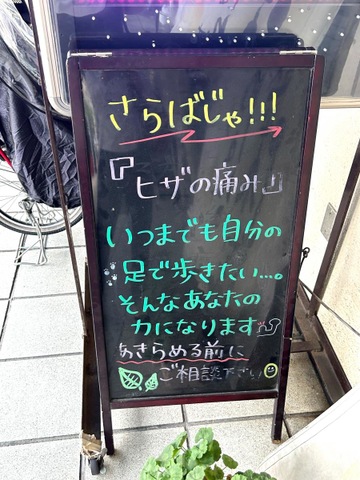 さらばじゃ!!!
『ヒザの痛み』
いつまでも自分の
足で歩きたい…。
そんなあなたの
力になります
あきらめる前に
ご相談下さい